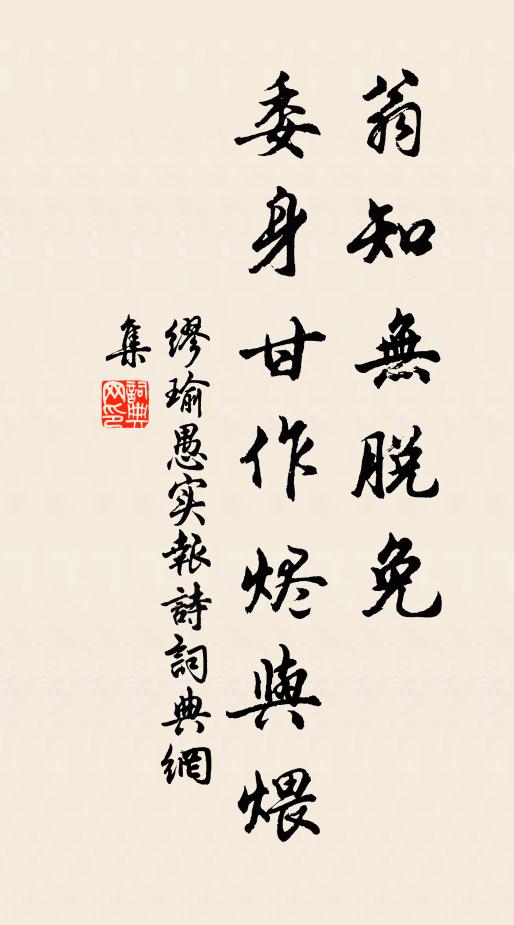 翁知無脱免
委身甘作烬與煨
缪瑜愚实報詩詞典網
集
詞典
网印